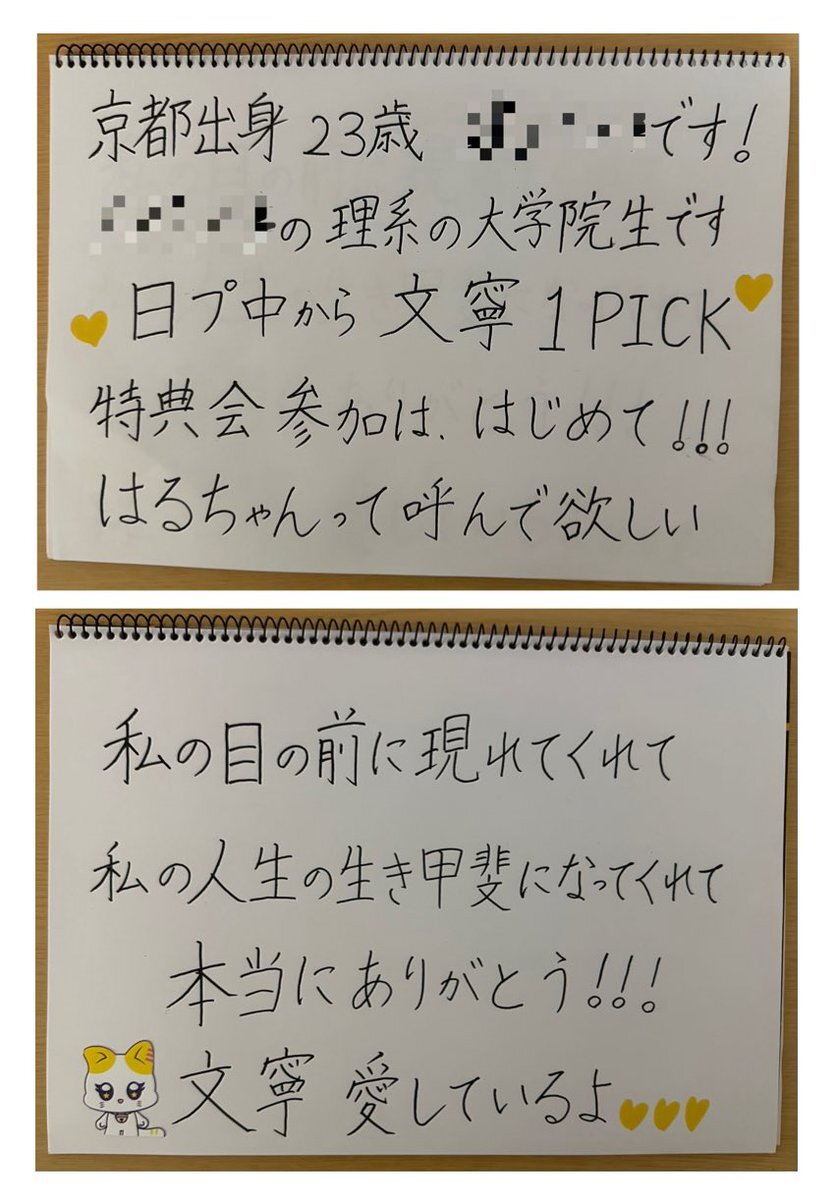 京都出身 23歳 です!
の理系の大学院生です
日プ中から 文寧 1PICK
特典会参加は、はじめて!!!
はるちゃんって呼んで欲しい
私の目の前に現れてくれて
私の人生の生き甲斐になってくれて
本当にありがとう!!!
文寧 愛しているよ